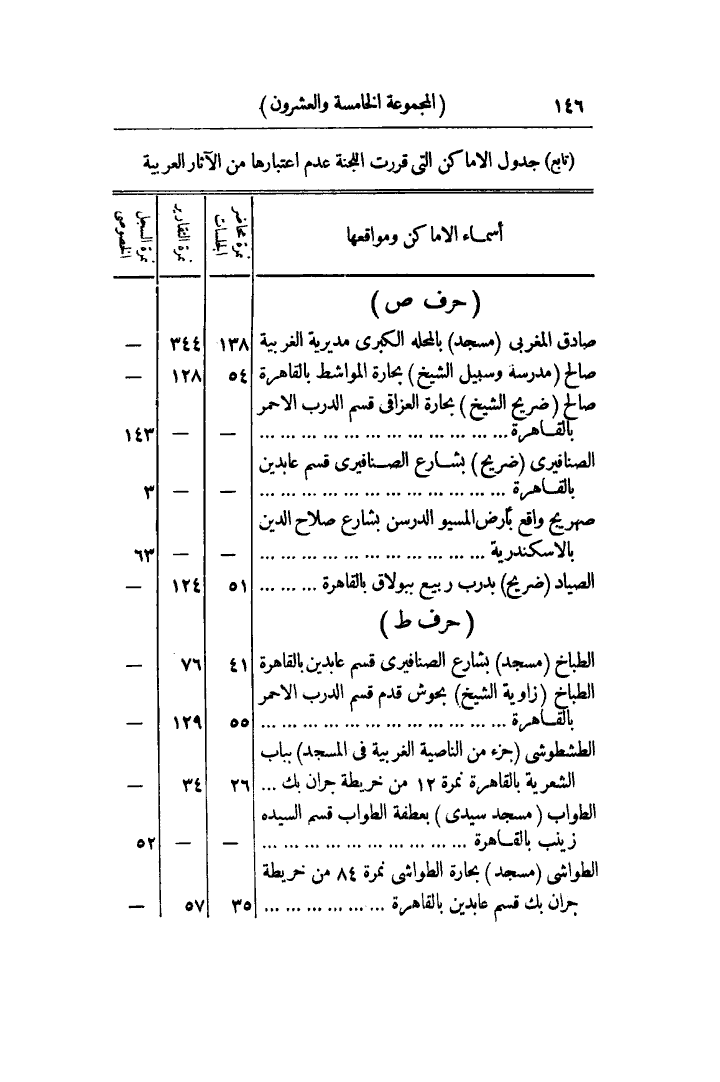 ١٤٦ (المجموعة الخامسة والعشرون)
(تابع) جدول الاماكن التى قررت اللجنة عدم اعتبارها من الآثار العربية
أسماء الاماكن ومواقعها نمرة محاضر الجلسات نمرة التقارير نمرة السجل الخصوصى
(حرف ص)
صادق المغربى (مسجد) بالمحله الكبرى مديرية الغربية ١٣٨ ٣٤٤ —
صالح (مدرسة وسبيل الشيخ) بحارة المواشط بالقاهرة ٥٤ ١٢٨ —
صالح (ضريح الشيخ) بحارة العزاقى قسم الدرب الاحمر
بالقاهرة ... ... ... ... ... ... ... ... ... ... ... ... — — ١٤٣
الصنافيرى (ضريح) بشارع الصنافيرى قسم عابدين
بالقاهرة ... ... ... ... ... ... ... ... ... ... ... ... — — ٣
صهريج واقع بأرض المسيو الدرسن بشارع صلاح الدين
بالاسكندرية ... ... ... ... ... ... ... ... ... ... ... — — ٦٣
الصياد (ضريح) بدرب ربيع ببولاق بالقاهرة ... ... ... ٥١ ١٢٤ —
(حرف ط)
الطباخ (مسجد) بشارع الصنافيرى قسم عابدين بالقاهرة ٤١ ٧٦ —
الطباخ (زاوية الشيخ) بحوش قدم قسم الدرب الاحمر
بالقاهرة ... ... ... ... ... ... ... ... ... ... ... ... ٥٥ ١٢٩ —
الطشطوشى (جزء من الناصية الغربية فى المسجد) بباب
الشعرية بالقاهرة نمرة ١٢ من خريطة جران بك ... ٢٦ ٣٤ —
الطواب (مسجد سيدى) بعطفة الطواب قسم السيده
زينب بالقاهرة ... ... ... ... ... ... ... ... ... ... — — ٥٢
الطواشى (مسجد) بحارة الطواشى نمرة ٨٤ من خريطة
جران بك قسم عابدين بالقاهرة ... ... ... ... ... ... ٣٥ ٥٧ —